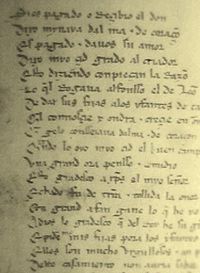 pagado o Recibio el don
Dixo mynaya dal ma · de coraço
Es pagado · dauos su amor
Dixo myo çid grado al Criador
Esto diziendo conpieçan la Razo
Lo ql Rogaua alfonsso el de Leo
De dar sus fijas alos yfantes de ca
Ql connosçie y ondra · creçe en
gelo conseiaua dalma · de coraçon
lo oyo myo çid el buen campe
Una grand ora penso · comidio
Esto gradesco a xps el myo señor
Echado fu de trra · tollida la onor
Con grand afan gane lo q he yo
Adios lo gradesco q del Rey he su gra
Epide mis fijas pora los yfantes
Ellos son mucho vrgullosos · an p
Deste casamiento non auria sabo